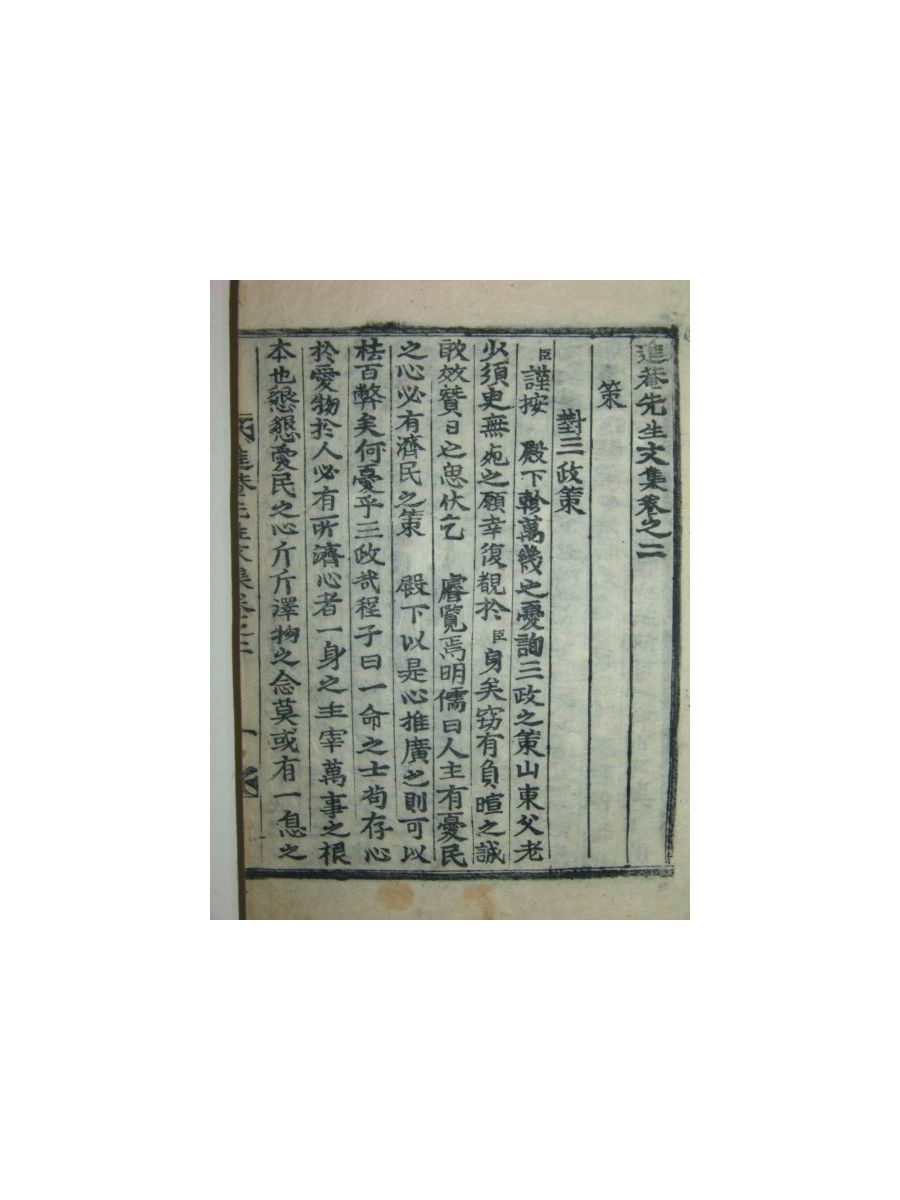 進菴先生文集卷之二
策
對三政策
臣謹按 殿下軫萬幾之憂詢三政之策山東父老
少須臾無死之願幸復覩於臣身矣窃有負暄之誠
敢效贊日之忠伏乞 睿覽焉明儒曰人主有憂民
之心必有濟民之策 殿下以是心推廣之則可以
祛百弊矣何憂乎三政哉程子曰一命之士苟存心
於愛物於人必有所濟心者一身之主宰萬事之根
本也懇懇愛民之心斤斤澤物之念莫或有一息之
進菴先生文集卷之二 一